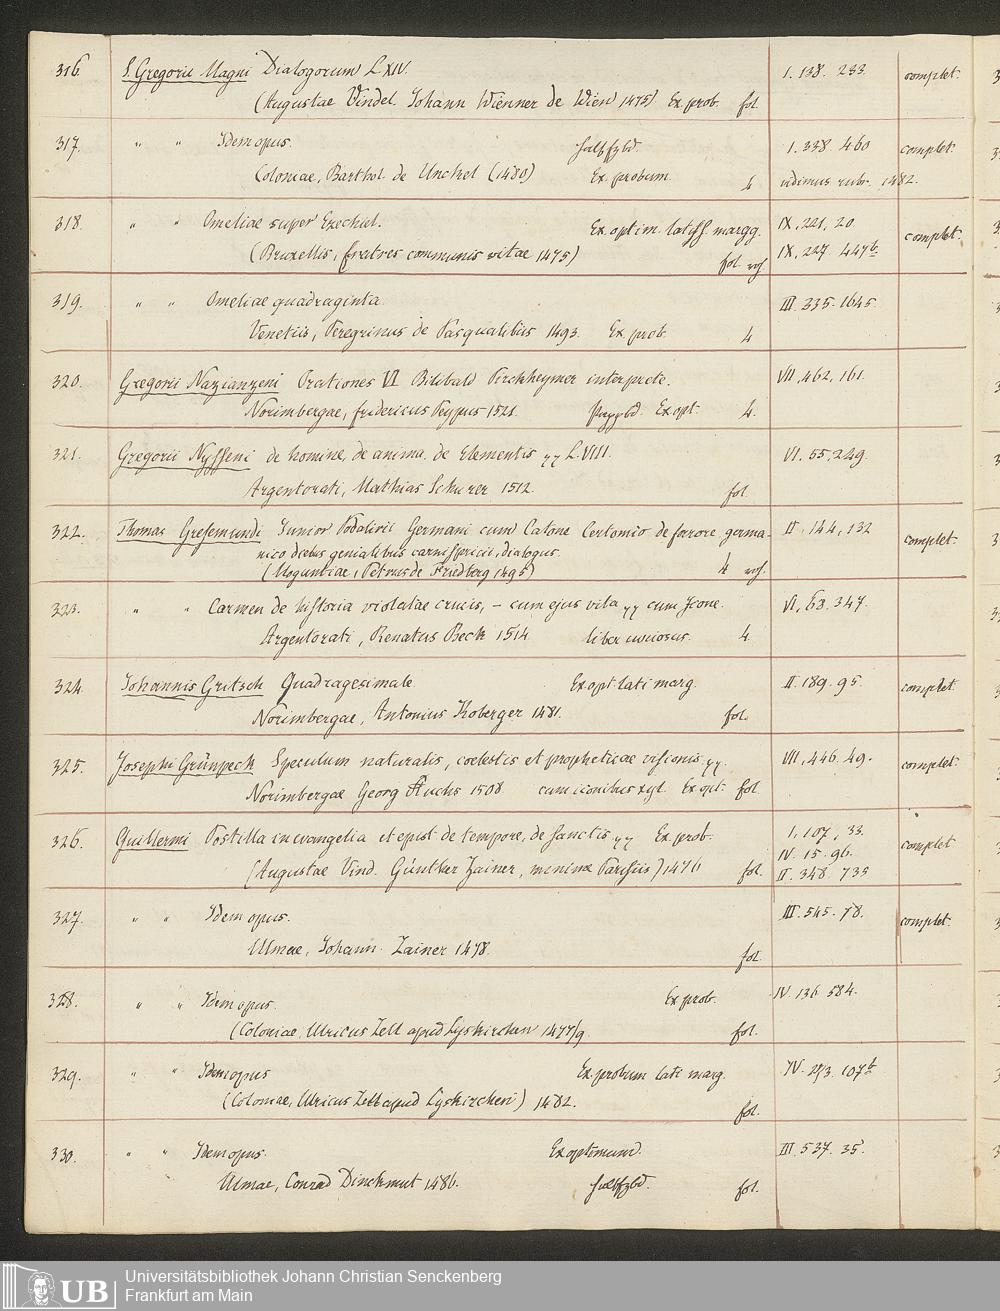 316. S. Gregorii Magni Dialogorum L XIV. I. 138. 233. complet.
(Augustae Vindel. Johann Wienner de Wien 1475) Ex prob. fol.
317. " " Idem opus. halbfzbd. I. 338. 460 complet.
Coloniae, Barthol. de Unckel (1480) Ex. probum. 4 rubr. 1482.
318. " " Omeliae super Ezechiel. Ex. optim. latiss. margg. IX, 221, 20 complet.
(Bruxellis, fratres communis vitae 1475) fol. IX, 227. 447b
319. " " Omeliae quadraginta III. 335. 1645.
Venetiis, Peregrinus de Pasqualibus 1493. Ex. prob. 4
320. Gregorii Nazianzeni Orationes VI Bilibald Pirckheymer interprete. VII, 462, 161.
Norimbergae, fridericus Peypus 1521. Ex opt. 4.
321. Gregorii Nysseni de homine, de anima, de Elementis L. VIII. VI. 55, 249.
Argentorati, Mathias Schurer 1512. fol.
322. Thomas Gresemundi Junior Podalirii Germani cum Catone Certomio de furore germa- II. 144, 132 complet.
nico diebus genialibus carnisprivii, dialogus.
(Moguntiae, Petrus de Friedberg 1495) 4
323. " " Carmen de historia violatae crucis, – cum ejus vita cum Icone. VI, 63. 347.
Argentorati, Renatus Beck 1514 liber 4.
324. Johannis Gritsch Quadragesimale. Ex opt. lati marg. II. 189. 95. complet.
Norimbergae, Antonius Koberger 1481. fol.
325. Josephi Grünpeck Speculum naturalis, coelestis et propheticae visionis VII, 446. 49. complet.
Norimbergae Georg Stuchs 1508 cum iconibus xyl. Ex opt. fol.
326. Guillermi Postilla in evangelia et epist. de tempore, de sanctis Ex prob. I, 107, 33. complet
IV. 15. 96.
(Augustae Vind. Günther Zainer, minime Parisiis) 1476 fol. II. 348. 735
327. " " Idem opus. III. 545. 78. complet.
Ulmae, Johann. Zainer 1478. fol.
328. " " Idem opus. Ex prob. IV. 136. 584.
(Coloniae, Ulricus Zell apud Lyskirchen 1477/9. fol.
329. " " Idem opus Ex. probum lati marg. IV. 107b
(Coloniae, Ulricus Zell apud Lyskirchen) 1482. fol.
330. " " Idem opus. Ex optimum. III. 537. 35.
Ulmae, Conrad Dinckmut 1486. halbfzbd. fol.
UB
Universitätsbibliothek Johann Christian Senckenberg
Frankfurt am Main